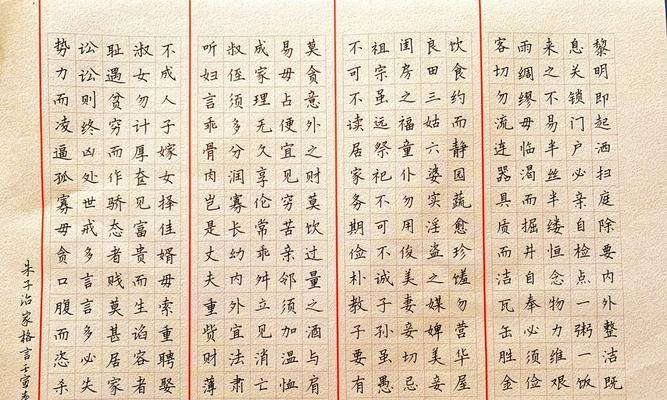 黎明即起洒扫庭除要内外整洁既
息关锁门户必亲自检点一粥一饭
来之不易半丝半缕恒念物力维艰
雨绸缪毋临渴而掘井自奉必须俭
客切勿流连器具质而洁瓦缶胜金
饮食约而静园蔬愈珍馐勿营华屋
良田三姑六婆实淫盗之媒婢美妾
闺房之福童仆勿用俊美妻妾切忌
祖宗虽远祭祀不可不诚子孙虽愚
不可不读居家务期俭朴教子要有
莫贪意外之财莫饮过量之酒与肩
易毋占便宜见穷苦亲邻须加温恤
成家理无久享伦常乖舛立见消亡
叔侄须多分润寡长幼内外宜法肃
听妇言乖骨肉岂是丈夫重赀财薄
不成人子嫁女择佳婿毋索重聘娶
淑女勿计厚奁见富贵而生谄容者
耻遇贫穷而作骄态者贱莫甚居家
讼讼则终凶处世戒多言言多必失
势力而凌逼孤寡毋贪口腹而恣杀
朱子治家格言壬寅